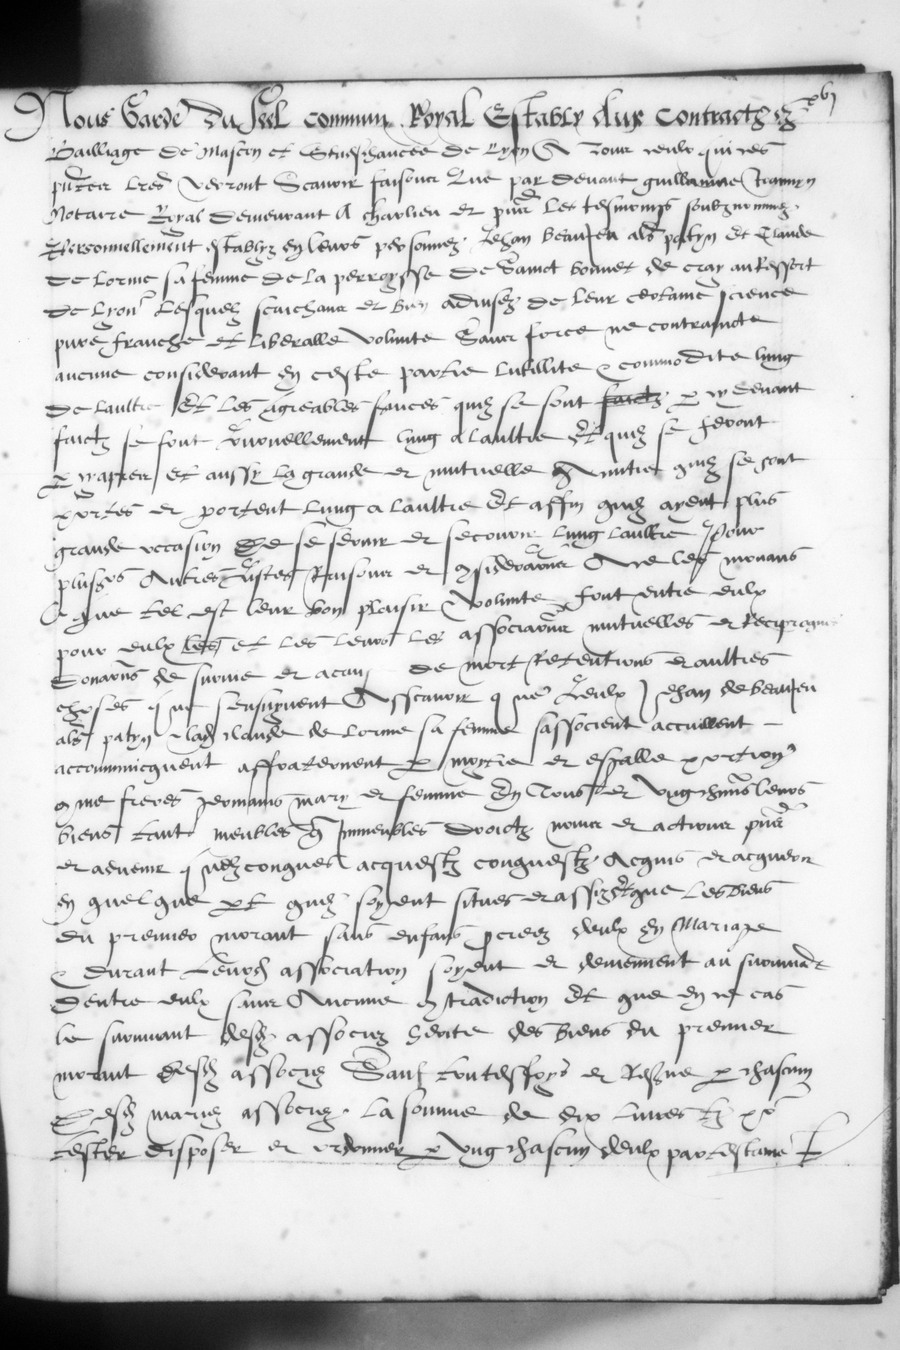 Nous Garde du Seel commun Royal Estably Aux Contractz ez
Bailliage de Mascon et Seneschaucee de Lyon A Tous ceulx qui ces
pntes lres verront Scavoir faisons Que par devant guillaume
Notaire Royal demeurant A charlieu et pns les tesmoings soubznommez
Personnellement establyz en leurs personnes Jehan beaujeu als patyn et Claude
de Lorme sa femme de la perroysse de Sainct bonnet de cray au Ressort
de Lyon Lesquelz saichans et bien advisez de leur certaine science
pure franche et liberalle volunte Sans force ne contraincte
aucune considerant en ceste partie lutillite & commodite lung
de laultre Et les agreables services quilz se sont faictz par cy devant
faictz se font lung a laultre Et quilz se feront
par cy apres et aussy la grande et mutuelle Amitie quilz se sont
portes et portent lung a laultre Et affin quilz ayent plus
grande occasion de se servir et secourir lung laultre Pour
plusrs Aultres Justes Raisons et considerations Ad ce les mouans
Et que tel est leur bon plaisir & volunte font entre eulx
pour eulx et les leurs les associations mutuelles et Reciproques
Donaons de survie et de mort Retentions et aultres
choses que sensuyvent Asscavoir que Iceulx Jehan de beaujeu
als patyn & lad claude de Lorme sa femme sassocient accuillent
accommicquent affraternent par moytie et esgalle portion
comme freres germains mary et femme En Tous et Ungchuns leurs
biens tant meubles que Immeubles droictz noms et actions pns
et advenir quelzconques acquestz conquestz Acquis et acquerir
en quelque part quilz soyent situes et assiz Et que les biens
du premier morant sans enfans procreez deulx en Mariage
& durant leurd association soyent et deviennent au survivant
dentre eulx sans Aucune contradiction Et que en ce cas
le survivant desd associez herite des biens du premier
morant desd associez Sauf touteffoys et Reserve par chascun
Desd mariez associez La somme de dix livres tz po
tester disposer et ordonner par Ung chascun deulx par testame